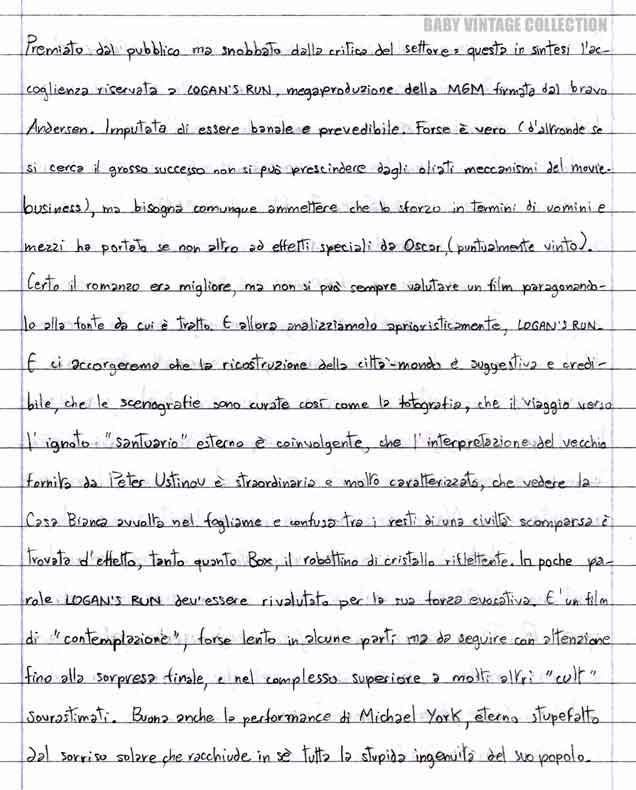 BABY VINTAGE COLLECTION
Premiato dal pubblico ma snobbato dalla critica del settore: questa in sintesi l'ac-
coglienza riservata a LOGAN'S RUN, megaproduzione della MGM firmata dal bravo
Andersen. Imputata di essere banale e prevedibile. Forse è vero (d'altronde se
si cerca il grosso successo non si può prescindere dagli oliati meccanismi del movie-
business), ma bisogna comunque ammettere che lo sforzo in termini di uomini e
mezzi ha portato se non altro ad effetti speciali da Oscar, (puntualmente vinto).
Certo il romanzo era migliore, ma non si può sempre valutare un film paragonando-
lo alla fonte da cui è tratto. E allora analizziamolo aprioristicamente, LOGAN'S RUN.
E ci accorgeremo che la ricostruzione della città-mondo è suggestiva e credi-
bile, che le scenografie sono curate così come la fotografia, che il viaggio verso
l'ignoto "santuario" esterno è coinvolgente, che l'interpretazione del vecchio
fornita da Peter Ustinov è straordinaria e molto caratterizzata, che vedere la
Casa Bianca avvolta nel fogliame e confusa tra i resti di una civiltà scomparsa è
trovata d'effetto, tanto quanto Box, il robottino di cristallo riflettente. In poche pa-
role LOGAN'S RUN dev'essere rivalutato per la sua forza evocativa. E' un film
di "contemplazione", forse lento in alcune parti ma da seguire con attenzione
fino alla sorpresa finale, e nel complesso superiore a molti altri "cult"
sovrastimati. Buona anche la performance di Michael York, eterno stupefatto
dal sorriso solare che racchiude in sè tutta la stupida ingenuità del suo popolo.